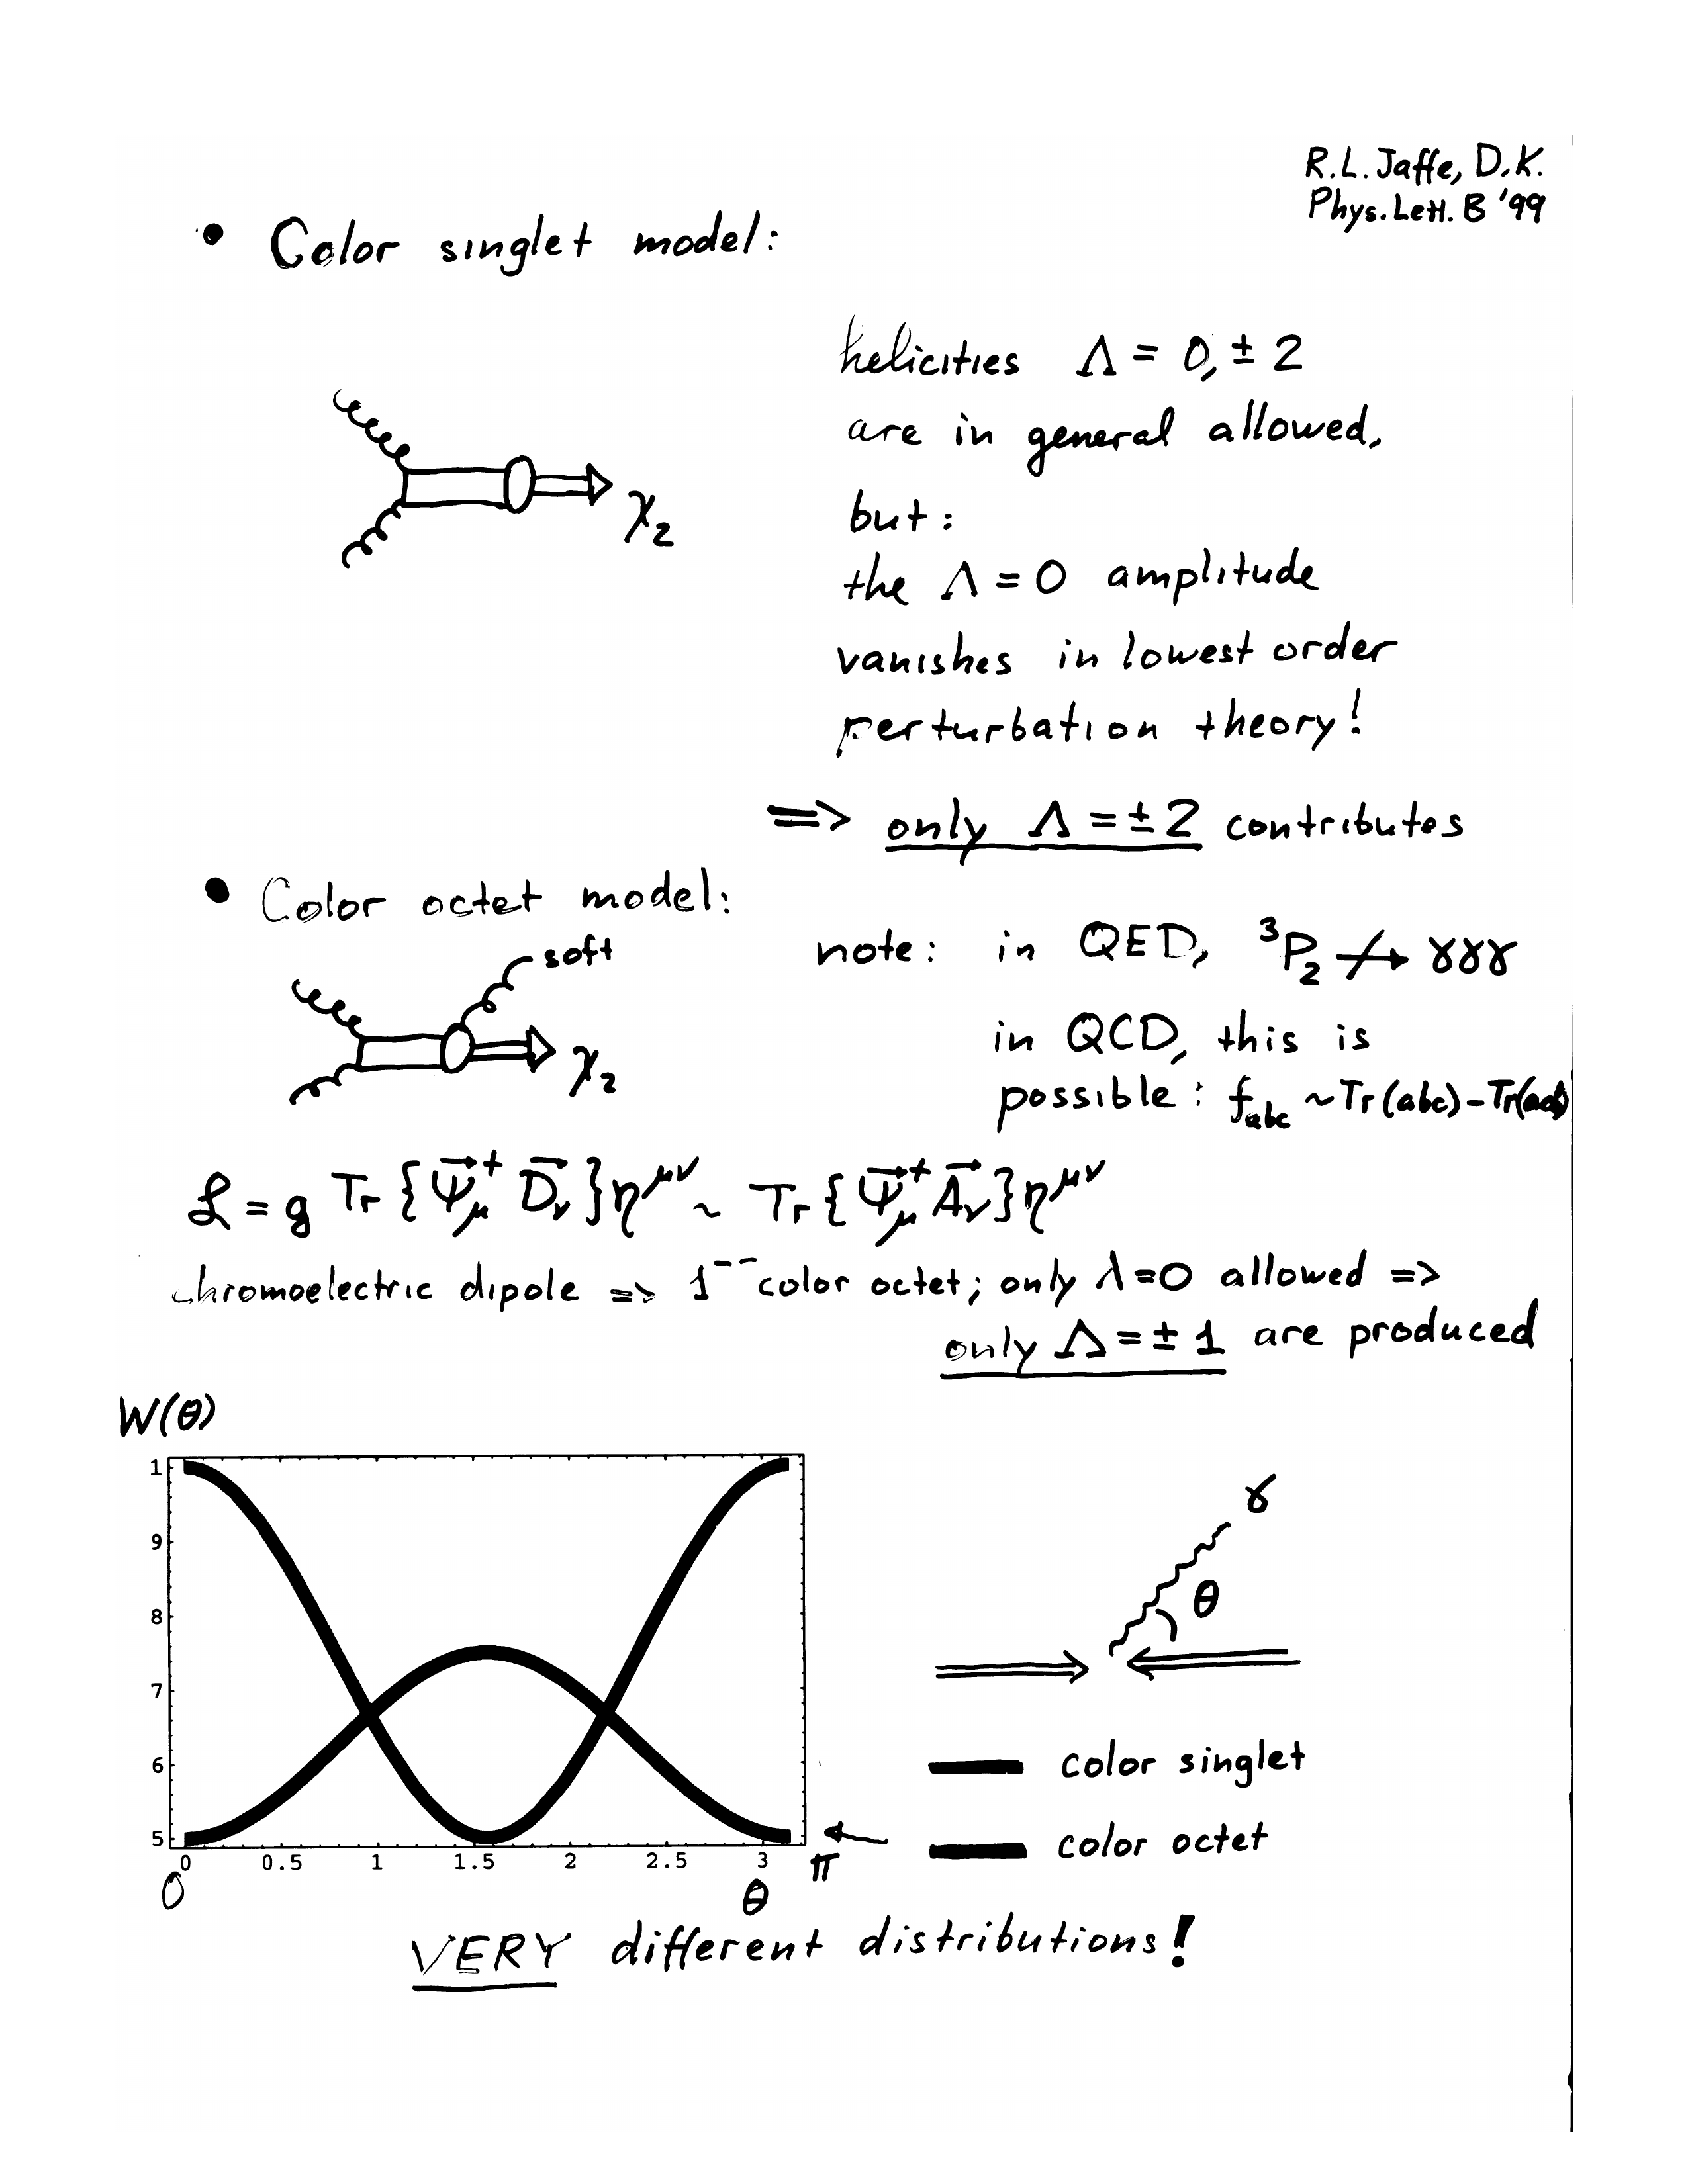 R.L. Jaffe, D.K.
Phys. Lett. B '99
• Color singlet model:
helicities Λ = 0, ± 2
are in general allowed,
χ₂
but:
the Λ = 0 amplitude
vanishes in lowest order
perturbation theory!
=> only Λ = ± 2 contributes
• Color octet model:
soft
χ₂
note: in QED, ³P₂ ↛ γγγ
in QCD, this is
possible: f_abc ~ Tr(abc) - Tr(acb)
ℒ = g Tr {Ψ⃗_μ⁺ D⃗_ν} η^μν ~ Tr {Ψ⃗_μ⁺ A⃗_ν} η^μν
chromoelectric dipole => 1⁻⁻ color octet; only λ=0 allowed =>
only Λ = ± 1 are produced
W(θ)
1
9
8
7
6
5
0 0.5 1 1.5 2 2.5 3
0 θ π
γ
θ
color singlet
color octet
VERY different distributions!